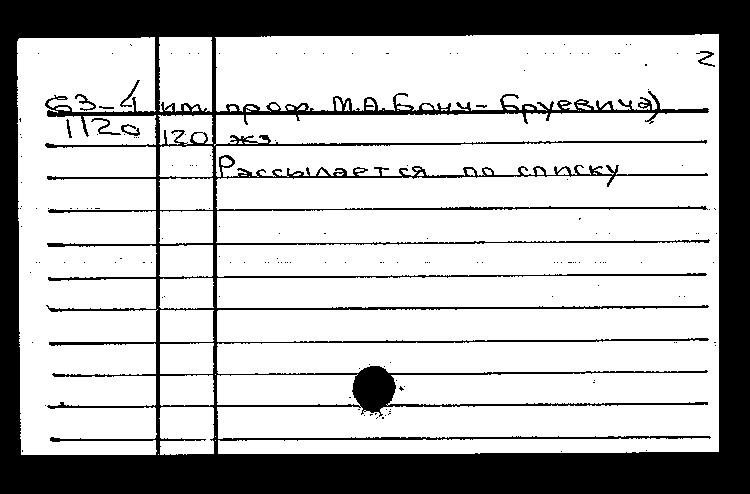 2
63-4 им. проф. М.А. Бонч-Бруевича)
1120 120 экз.
Рассылается по списку